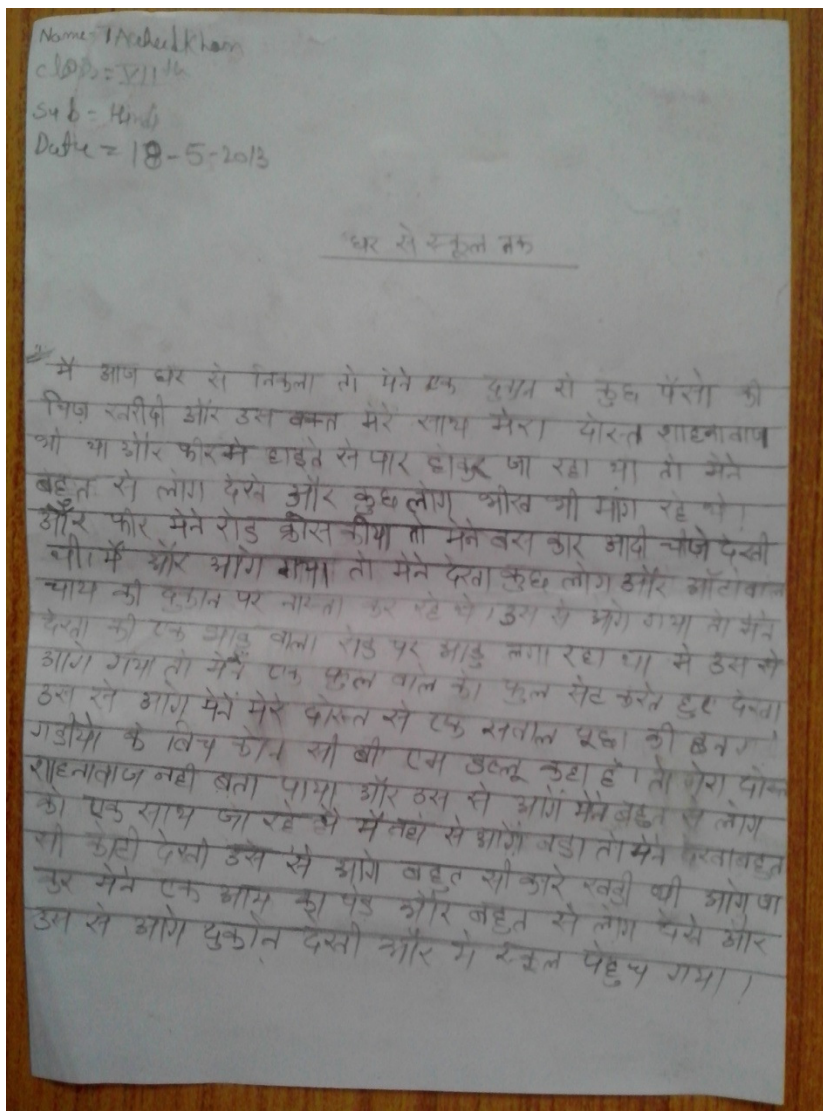 Name-
Class = VII th
Sub = Hindi
Date = 18-5-2013
घर से स्कूल तक
मै आज घर से निकला तो मेने एक दुकान से कुछ पैसो की
चिज खरीदी और उस वक्त मेरे साथ मेरा दोस्त शाहनावाज
भी था और फीर मे हाइवे से पार होकर जा रहा था तो मेने
बहुत से लोग देखे और कुछ लोग भीख भी मांग रहे थे।
और फीर मेने रोड क्रोस कीया तो मेने बस कार आदी चीजे देखी
थी। मै और आगे गया तो मेने देखा कुछ लोग और ऑटोवाले
चाय की दुकान पर नास्ता कर रहे थे। उस से आगे गया तो मेने
देखा की एक झाडु वाला रोड पर झाडु लगा रहा था मे उस से
आगे गया तो मेने एक फुल वाले को फुल सेट करते हुए देखा
उस से आगे मेने मेरे दोस्त से एक सवाल पूछा की इन
गडीयो के बिच कोन सी बी एम डब्लू कहा है। तो मेरा दोस्त
शाहनावाज नही बता पाया और उस से आगे मेने बहुत से लोग
को एक साथ जा रहे थे मै वहा से आगे बडा तो मेने देखा बहुत
सी कोठी देखी उस से आगे बहुत सी कारे खडी थी आगे जा
कर मेने एक आम का पेड और बहुत से लोग देखे और
उस से आगे दुकाने देखी और मे स्कूल पेहुच गया।